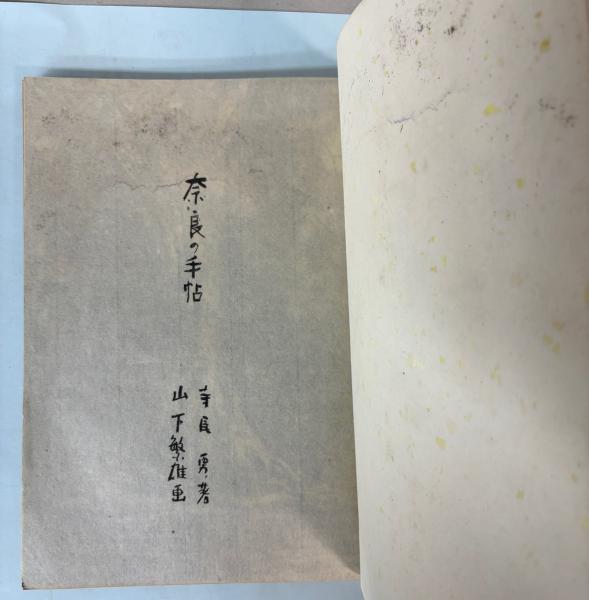 奈良の手帖
寺尾 勇著
山下繁雄画